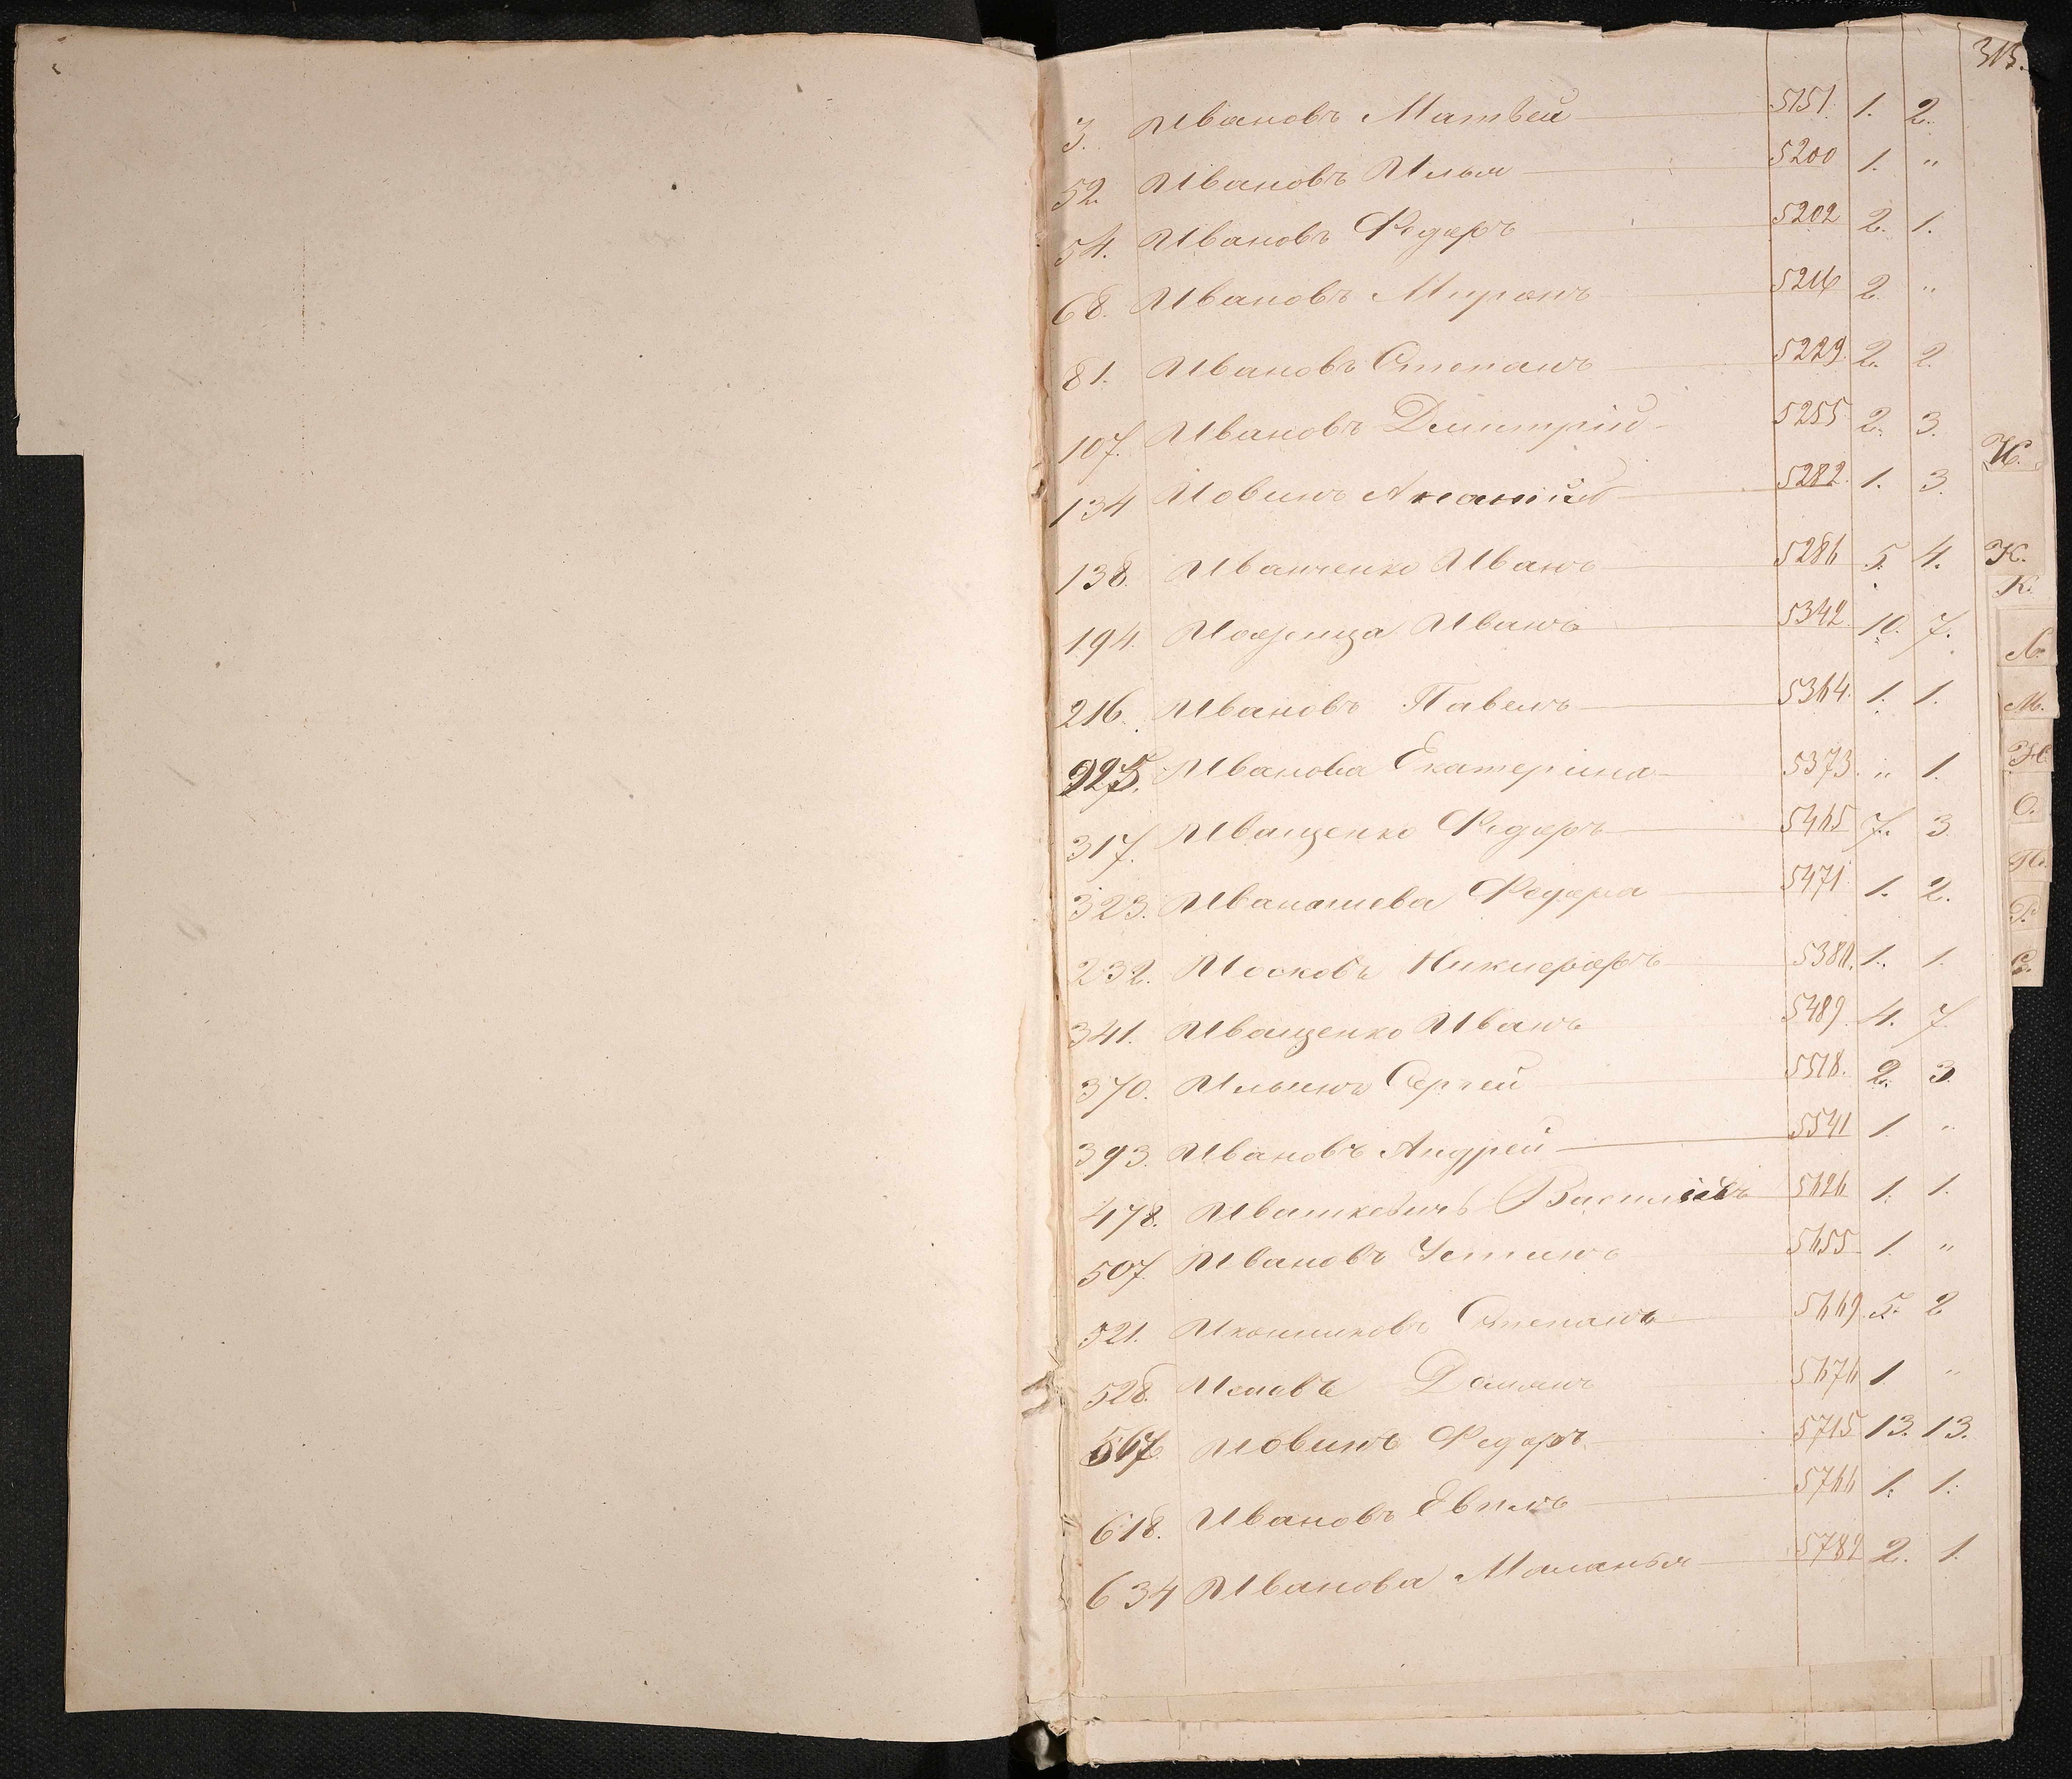 313.
3. Ивановъ Матвей 5151. 1. 2.
52. Ивановъ Илья 5200 1. "
54. Ивановъ Федоръ 5202 2. 1.
68. Ивановъ Миронъ 5216 2. "
81. Ивановъ Степанъ 5229. 2. 2.
107. Ивановъ Дмитрій 5255 2. 3.
134 Иовинъ 5282. 1. 3.
138. Иванченко Иванъ 5286 5. 4.
194. Иванъ 5342. 10. 7.
216. Ивановъ Павелъ 5364. 1. 1.
225. Иванова Екатерина 5373. " 1.
317. Иващенко Федоръ 5465 7. 3.
323. Федора 5471. 1. 2.
232. Никифоръ 5380. 1. 1.
341. Иващенко Иванъ 5489. 4. 7.
370. Ильинъ Сергей 5518. 2. 3
393. Ивановъ Андрей 5541 1. "
478. Ивашкевичъ 5626 1. 1.
507. Ивановъ Устинъ 5655 1. "
521. Иконниковъ Степанъ 5669. 5. 2
528. 5676 1 "
567. Иовинъ Федоръ 5715 13. 13.
618. Ивановъ 5766 1. 1.
634 Иванова Маланья 5782 2. 1.
И.
К.
К.
Л.
М.
Н.
О.
П.
Р.
С.